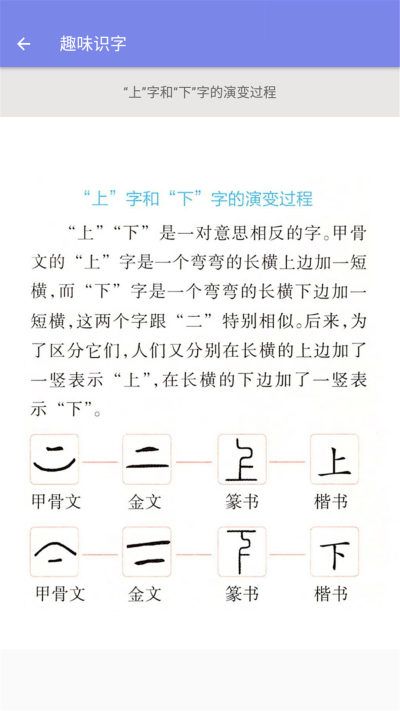 趣味识字
“上”字和“下”字的演变过程
“上”字和“下”字的演变过程
“上”“下”是一对意思相反的字。甲骨
文的“上”字是一个弯弯的长横上边加一短
横,而“下”字是一个弯弯的长横下边加一
短横,这两个字跟“二”特别相似。后来,为
了区分它们,人们又分别在长横的上边加了
一竖表示“上”,在长横的下边加了一竖表
示“下”。
上
甲骨文 金文 篆书 楷书
下
甲骨文 金文 篆书 楷书